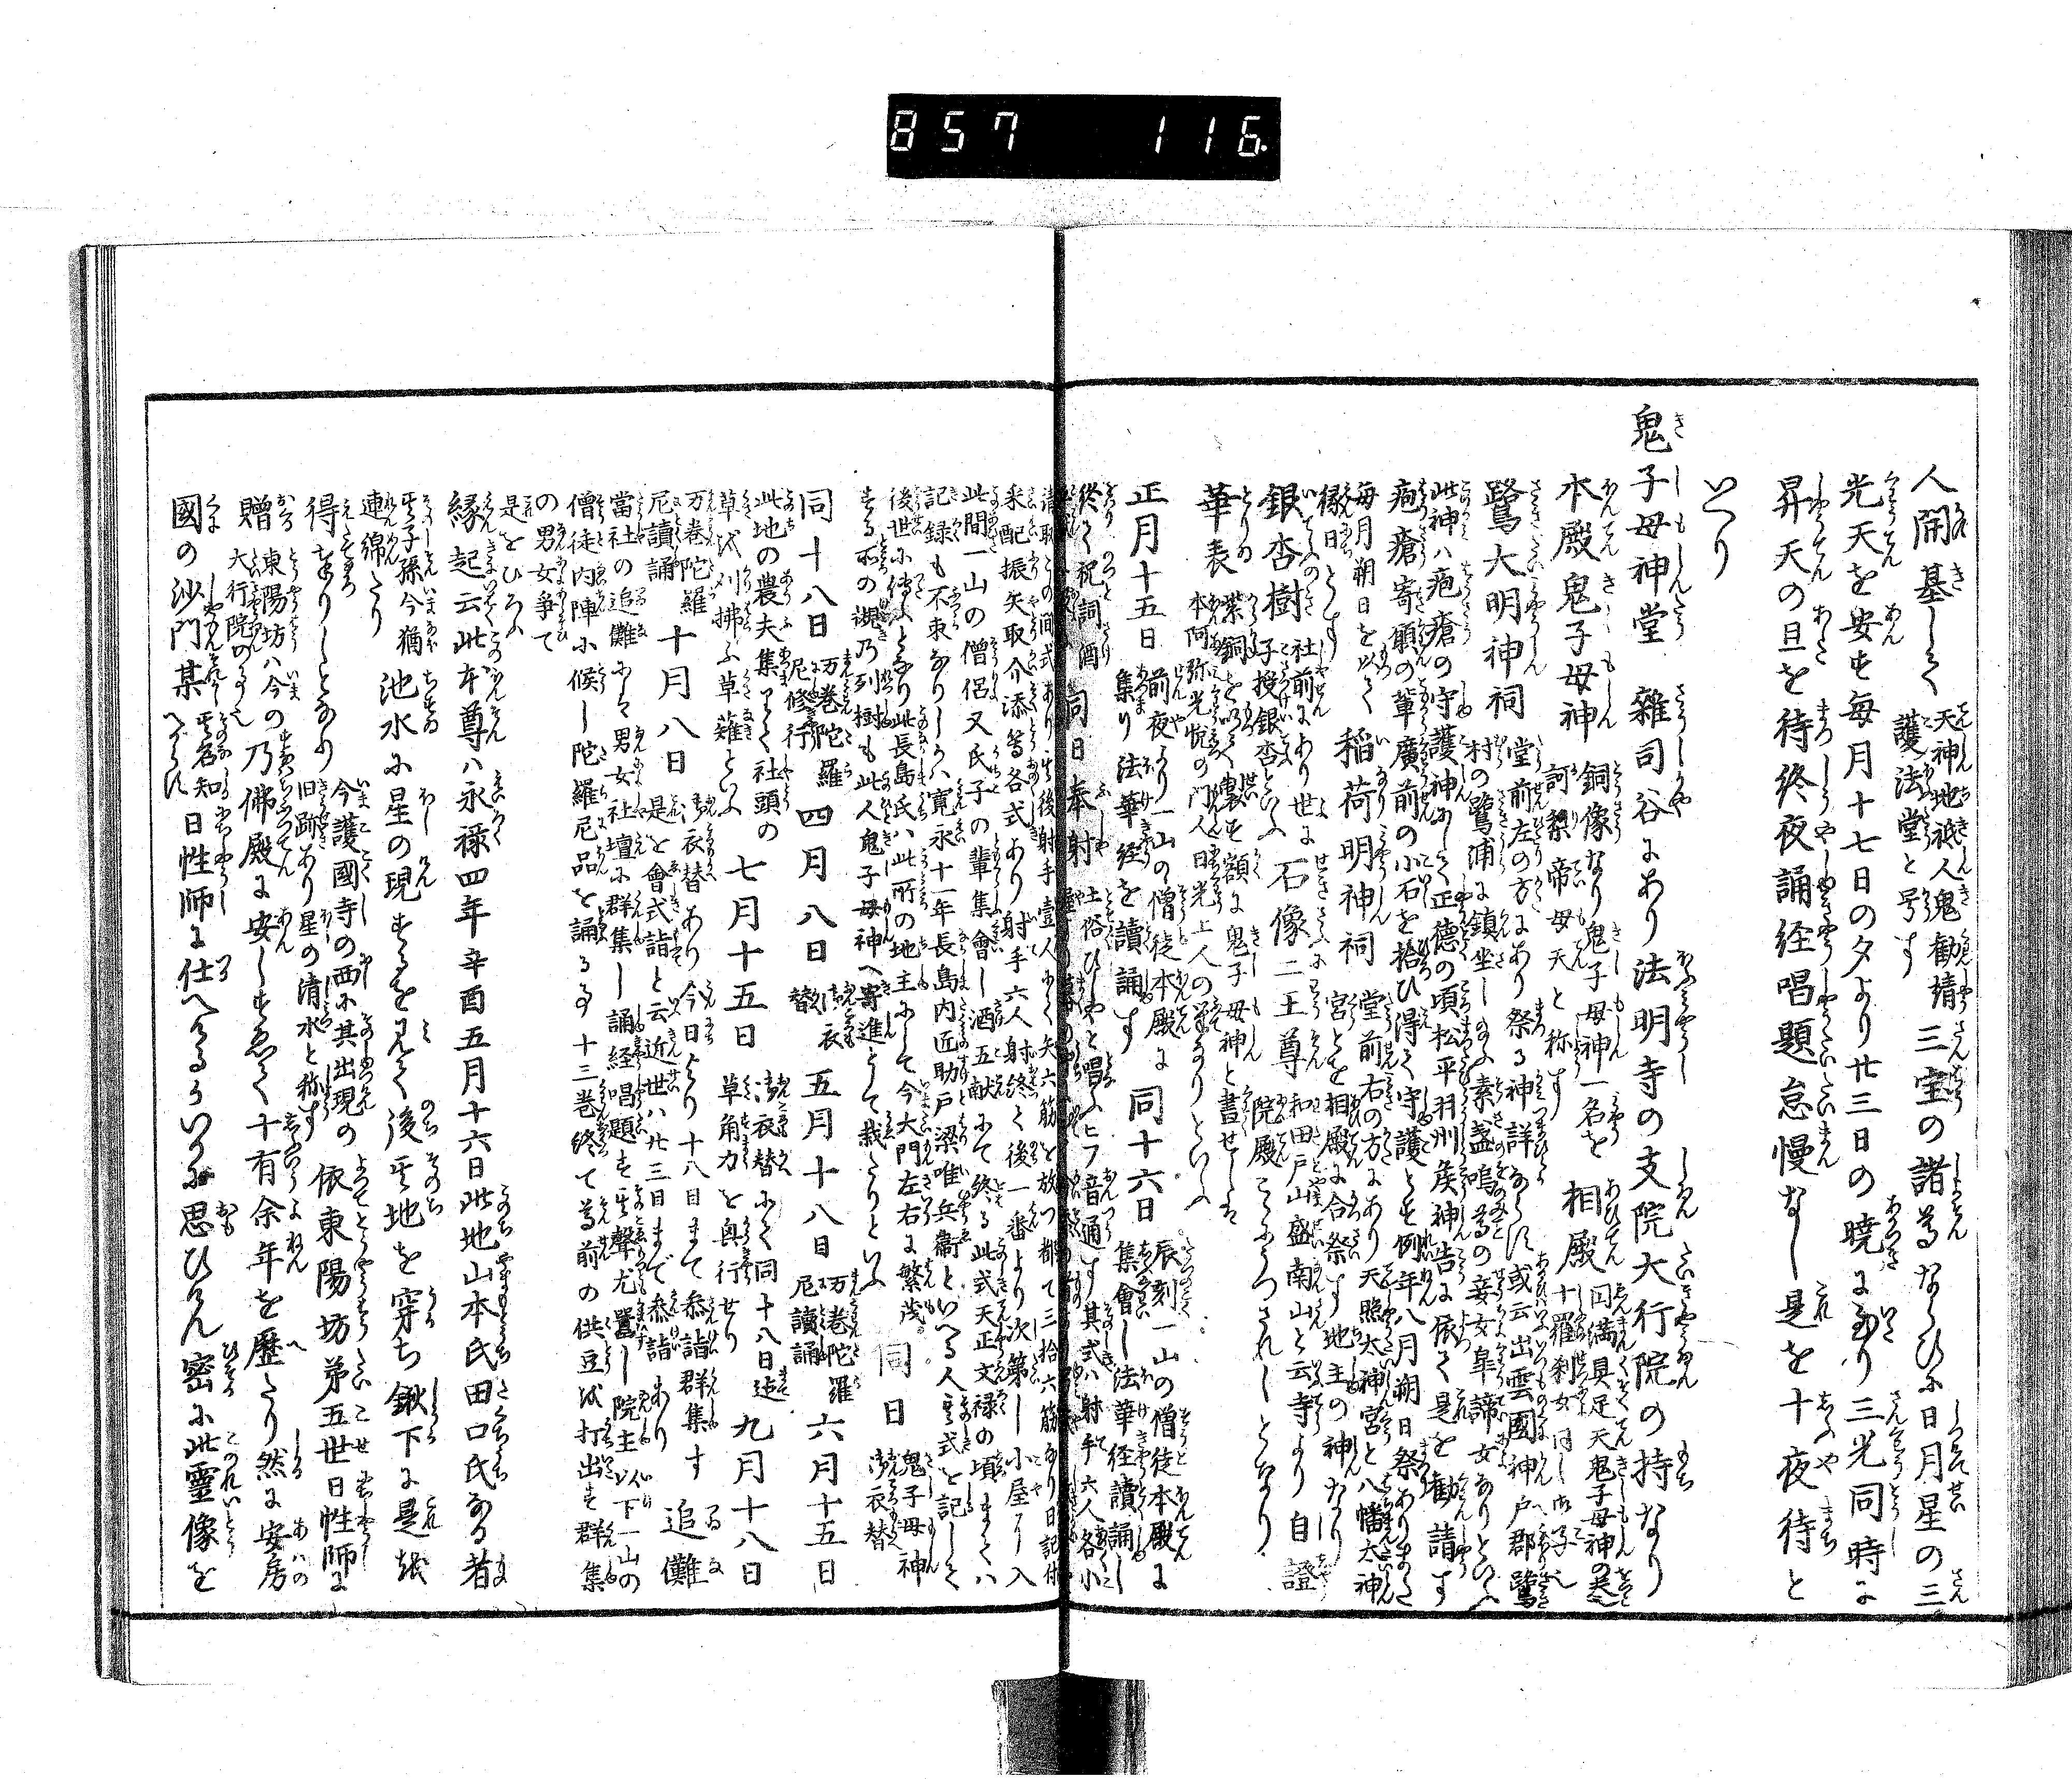 857 116
人開基して天神地祇人鬼勧請三宝の諸尊ならひに日月星の三
護法堂と号す
光天を安す毎月十七日の夕より廿三日の暁に至り三光同時に
昇天の旦を待終夜誦経唱題怠慢なし是を十夜待と
いへり
鬼子母神堂 雑司谷にあり法明寺の支院大行院の持なり
本殿鬼子母神 銅像なり鬼子母神一名を
訶梨帝母天と称す 相殿 円満具足天鬼子母神の
十羅刹女同し御子也
鷺大明神祠 堂前左の方にあり祭る神詳ならす或云出雲國神戸郡鷺
村の鷺浦に鎮坐しのふ素盞嗚尊の妾女皐諦女ありといふ
此神ハ疱瘡の守護神にして正徳の頃松平羽州侯神告に依て是を勧請す
疱瘡寄願の輩廣前の小石を拾ひ得て守護とす例年八月朔日祭ありまた
毎月朔日を以て
縁日とす 稲荷明神祠 堂前右の方にあり天照太神宮と八幡太神
宮とを相殿に合祭す地主の神なり
銀杏樹 社前にあり世に
子授銀杏といふ 石像二王尊 和田戸山盛南山と云寺より自證
院殿こゝにうつされしとなり
華表 紫銅を以て製す額に鬼子母神と書せしは
本阿弥光悦の門人日光上人の筆なりといふ
正月十五日 前夜より一山の僧徒本殿に
集り法華経を讀誦す 同十六日 辰刻一山の僧徒本殿に
集會し法華経讀誦し
終て祝詞酒 同日奉射 土俗ひしやと唱ふヒフ音通す其式ハ射手六人各小
請取しの間式あり其後射手壹人にて矢六筋を放つ都て三拾六筋なり日記付
采配振矢取介添等各式あり射手六人射終て後一番より次第し小屋に入
此間一山の僧侶又氏子の輩集會し酒五献にて終る此式天正文禄の頃まてハ
記録も不束なりしハ寛永十一年長島内匠助戸梁唯兵衛といへる人其式を記して
後世に傳ふとなり此長島氏ハ此所の地主にして今大門左右に繁茂
する所の槻乃列樹も此人鬼子母神へ寄進として栽たりといふ 同日 鬼子母神
御衣替
同十八日 万巻陀羅
尼修行 四月八日 御衣
替 五月十八日 万巻陀羅
尼讀誦 六月十五日
此地の農夫集りて社頭の
草を刈拂ふ草薙といふ 七月十五日 御衣替にて同十八日迠
草角力を興行せり 九月十八日
万巻陀羅
尼讀誦 十月八日 御衣替あり今日より十八日まて参詣群集す
是を會式詣と云近世ハ廿三日まで参詣あり 追儺
當社の追儺にハ男女社壇に群集し誦経唱題す其聲尤囂し院主以下一山の
僧徒内陣に候し陀羅尼品を誦する事十三巻終て尊前の供豆を打出す群集
の男女争て
是をひろふ
縁起云此本尊ハ永禄四年辛酉五月十六日此地山本氏田口氏なる者
其子孫今猶
連綿たり 池水に星の現するを見て後其地を穿ち鍬下に是を
得たりしとなり 今護國寺の西に其出現の
旧跡あり星の清水と称す 依東陽坊第五世日性師に
贈 東陽坊ハ今の
大行院のこと也 乃佛殿に安しすゑて十有余年を歴たり然に安房
國の沙門某 其名知
へからす 日性師に仕へけるかいかに思ひけん密に此霊像を